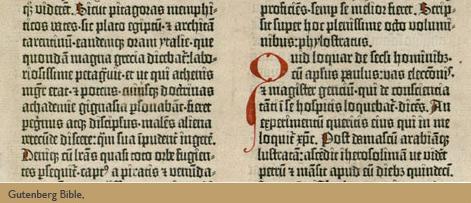 q̄ videret. Sicut pitagoras memphi-
ticos vates. sic plato egiptū. ⁊ architā
tarentinū. eandemq; oram ytalie. que
quondā magna grecia dicebat. labo-
riosissime peragrauit. et ut qui athenis
mgr̄ erat. ⁊ potens. cuiusq; doctrinas
achademie gignasia psonabāt. fieret
pegrinus atq; discipulus. malēs aliena
verecunde discere. q̄ sua impudent ingere.
Deniq; cū lr̄as quasi toto orbe fugien-
tes psequit. capt⁹ a piratis ⁊ venūda-
proficiēs. semp se melior fieret. Scrip-
sit super hoc plenissime octo volumi-
nibus. phylostratus.
Quid loquar de secli hominibz.
cū apłus paulus. vas electōnis.
⁊ magister genciū. qui de consciencia
tāti i se hospitis loquebat̄. dicēs. An
experimentū queritis eius qui in me
loquit̄ xp̄c. Post damascū arabiāq;
lustratā. ascēdit iherosolimā ut videt
petrū ⁊ māsit apud eū diebz quindeci.
Gutenberg Bible,